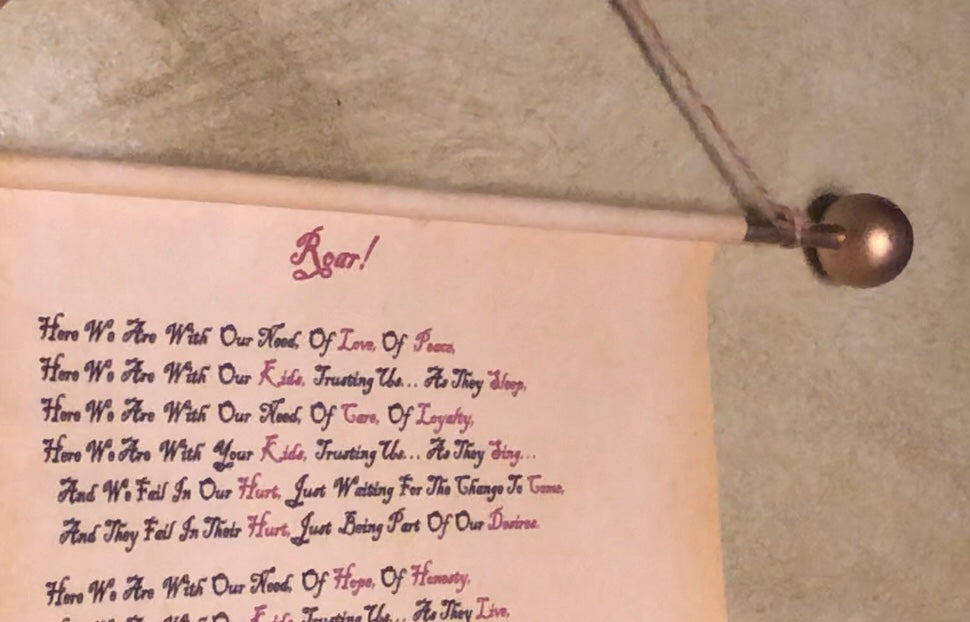 Roar!
Here We Are With Our Need, Of Love, Of Peace,
Here We Are With Our Kids, Trusting Us... As They Sleep,
Here We Are With Our Need, Of Care, Of Loyalty,
Here We Are With Your Kids, Trusting Us... As They Sing...
And We Fail In Our Hurt, Just Waiting For The Change To Come,
And They Fail In Their Hurt, Just Being Part Of Our Desires.
Here We Are With Our Need, Of Hope, Of Honesty,
Here We Are With Our Kids, Trusting Us... As They Live,